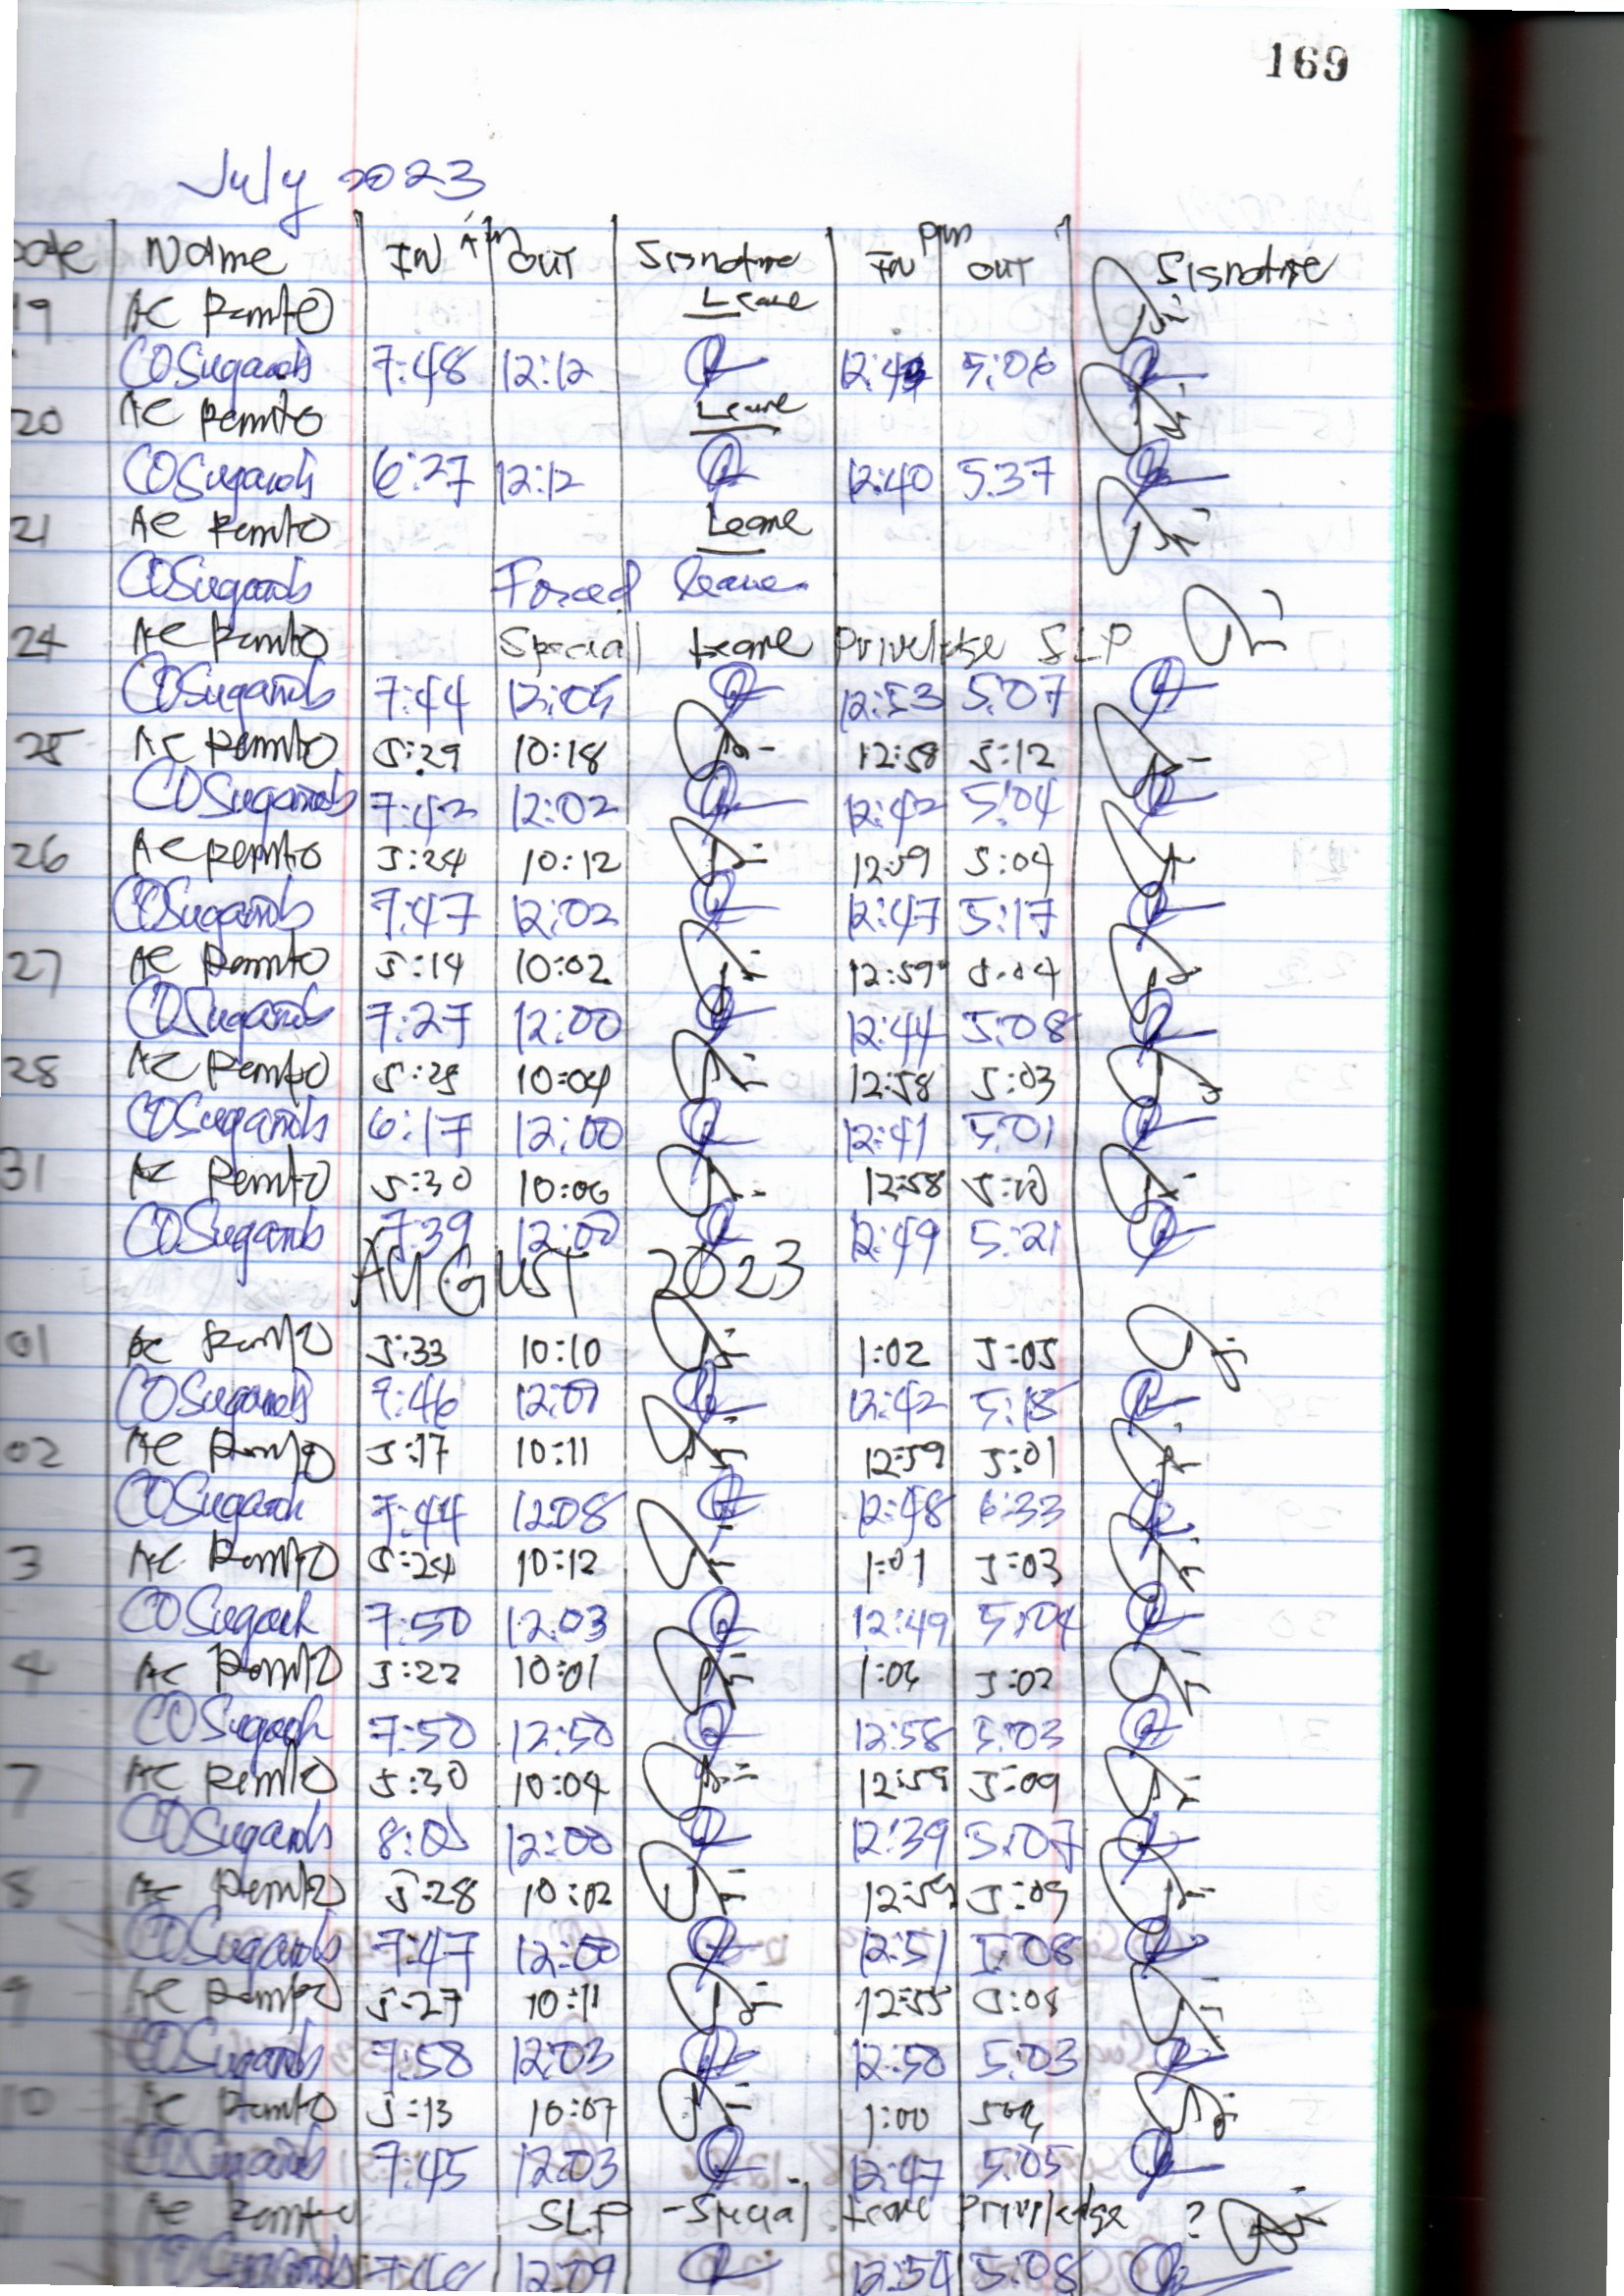 169
July 2023
Date Name IN AM OUT Signature IN pm OUT Signature
19 AC Remto Leave
COSugarols 7:48 12:12 12:43 5:06
20 AC Remto Leave
COSugarols 6:27 12:12 12:40 5:37
21 AC Remto Leave
COSugarols Forced leave
24 AC Remto Special Leave Priveledge SLP
COSugarols 7:44 12:05 12:53 5:07
25 AC Remto 5:29 10:18 12:58 5:12
COSugarols 7:42 12:02 12:42 5:04
26 AC Remto 5:24 10:12 12:59 5:04
COSugarols 7:47 12:02 12:47 5:17
27 AC Remto 5:14 10:02 12:59 5:04
COSugarols 7:27 12:00 12:44 5:08
28 AC Remto 5:25 10:04 12:58 5:03
COSugarols 6:17 12:00 12:41 5:01
31 AC Remto 5:30 10:06 12:58 5:10
COSugarols 7:39 12:00 12:49 5:21
AUGUST 2023
01 AC Remto 5:33 10:10 1:02 5:05
COSugarols 7:46 12:01 12:42 5:18
02 AC Remto 5:17 10:11 12:59 5:01
COSugarols 7:44 12:08 12:48 6:33
3 AC Remto 5:24 10:12 1:01 5:03
COSugarols 7:50 12:03 12:49 5:04
4 AC Remto 5:22 10:01 1:04 5:02
COSugarols 7:50 12:50 12:58 5:03
7 AC Remto 5:30 10:04 12:59 5:09
COSugarols 8:01 12:00 12:39 5:07
8 AC Remto 5:28 10:02 12:59 5:09
COSugarols 7:47 12:00 12:51 5:08
9 AC Remto 5:27 10:11 12:55 5:08
COSugarols 7:58 12:03 12:50 5:03
10 AC Remto 5:13 10:07 1:00
COSugarols 7:45 12:03 12:47 5:05
AC Remto SLP - Special Leave Priviledge ?
COSugarols 12:09 12:54 5:08